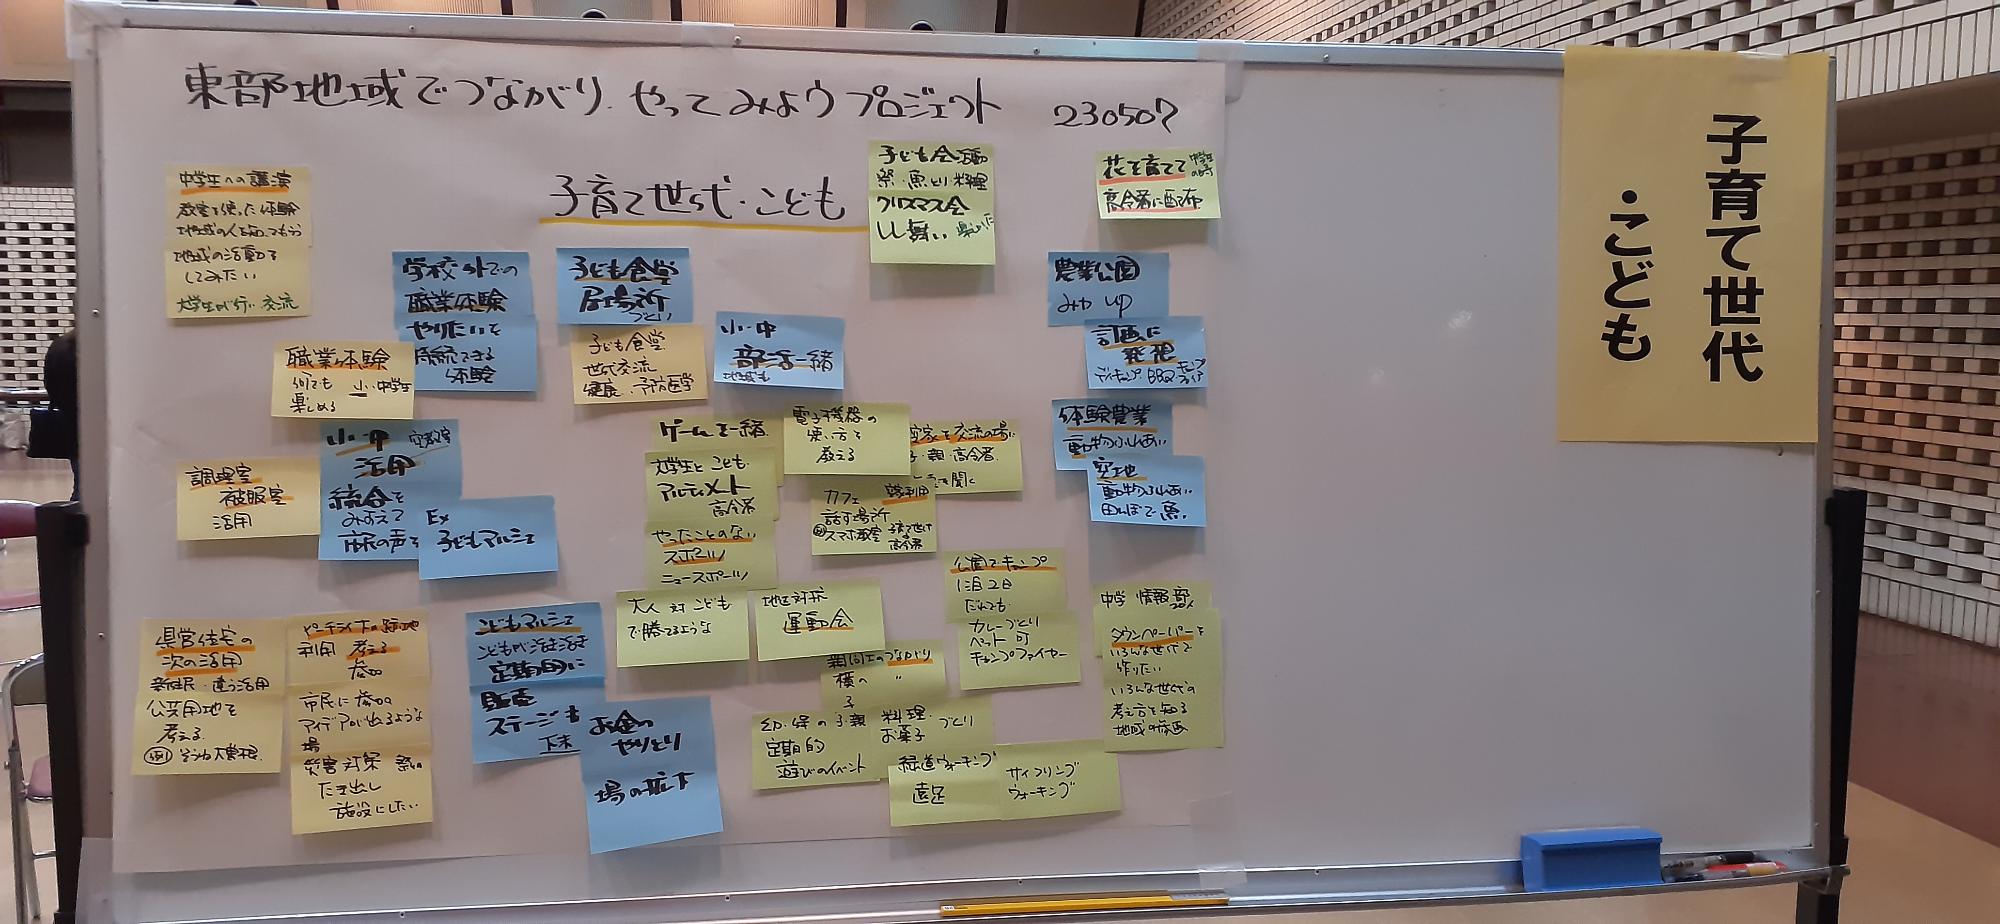 東部地域でつながり.やってみようプロジェクト 230507
子育て世代・こども
子育て世代
・こども
中学生への講演
教室を使った体験
地域の人を知ってもらう
地域の活動を
してみたい
大学生が行い交流
学校外での
職業体験
やりたいを
持続できる
体験
職業体験
何でも 小・中学生
楽しめる
子ども食堂
居場所
づくり
子ども食堂
世代交流
健康・予防医学
小・中
部活一緒
地域も
子ども会活動
祭・魚とり・料理
クリスマス会
しし舞い 楽しかった
花を育てて 中学生の時
高令者に配布
農業公園
みか up
計画に
発想
デイキャンプ・BBQ キャンプファイヤ
体験農業
動物ふれあい
空地
動物ふれあい
田んぼで魚.
小・中 空教室
活用
統合を
みすえて
市民の声を
調理室
被服室
活用
Ex
子どもマルシェ
ゲームを一緒
大学生とこども
アルティメット
高令者
やったことのない
スポーツ
ニュースポーツ
電子機器の
使い方を
教える
空家を交流の場に
子・親・高令者
を聞く
カフェ
話す場所
例スマホ教室 子育て世代
高令者
大人対こども
で勝てるような
地区対抗
運動会
公園でキャンプ
1泊2日
だれでも
カレーづくり
ペット可
キャンプファイヤー
中学 情報部
20人
タウンペーパーを
いろんな世代で
作りたい
いろんな世代の
考え方を知る
地域の
県営住宅の
次の活用
新住民・違う活用
公共用地を
考える
例
利用 考える
参加
市民に参加
アイデアが出るような
場
災害対策 祭り
たき出し
施設にしたい
こどもマルシェ
こどもが活き活き
定期的に
販売
ステージも
お金の
やりとり
場の拡大
親同士のつながり
横へ 〃
子
幼・保の子・親
定期的
遊びのイベント
料理・
お菓子 づくり
緑道ウォーキング
遠足
サイクリング
ウォーキング